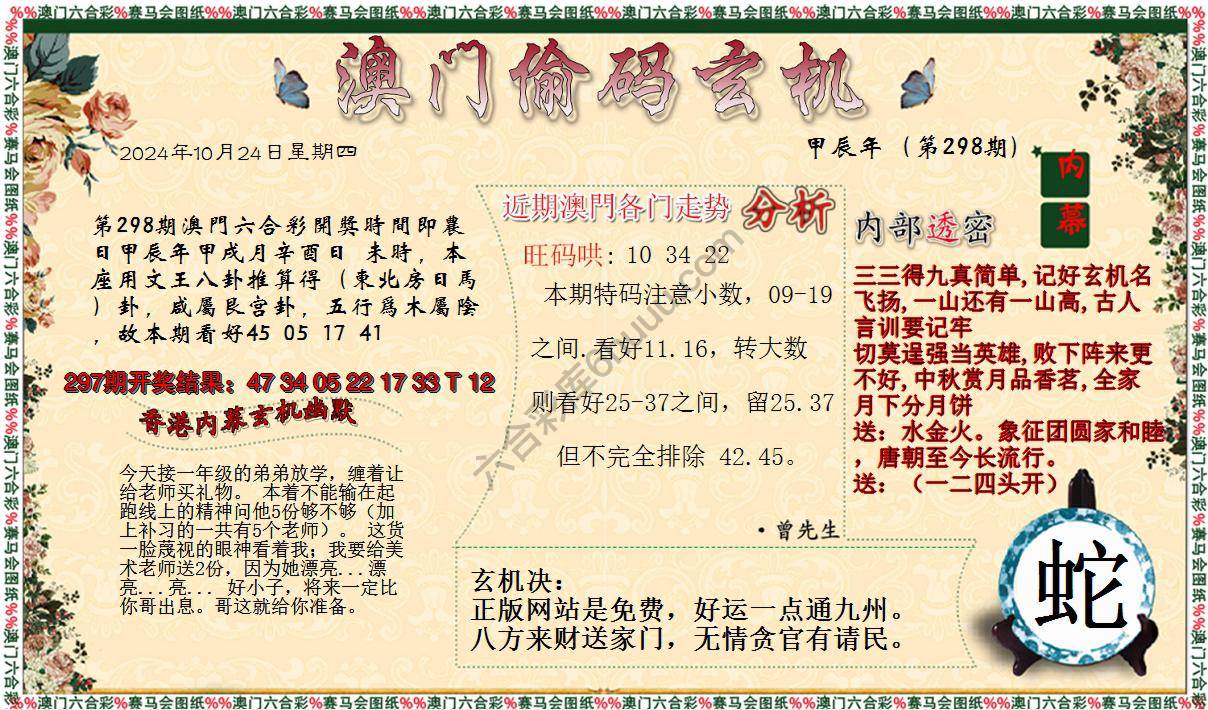 %%澳门六合彩%赛马会图纸%%澳门六合彩%赛马会图纸%%澳门六合彩%赛马会图纸%%澳门六合彩%赛马会图纸%%澳门六合彩%赛马会图纸%%澳门六合彩%赛马会图纸%%
澳门偷码玄机
2024年10月24日星期四
甲辰年（第298期）
内
幕
第298期澳門六合彩開獎時間即農
日甲辰年甲戌月辛酉日 未時，本
座用文王八卦推算得（東北房日馬
）卦，咸屬艮宫卦，五行爲木屬陰
，故本期看好45 05 17 41
297期开奖结果：47 34 05 22 17 33 T 12
香港内幕玄机幽默
今天接一年级的弟弟放学，缠着让
给老师买礼物。 本着不能输在起
跑线上的精神问他5份够不够（加
上补习的一共有5个老师）。 这货
一脸蔑视的眼神看着我；我要给美
术老师送2份，因为她漂亮...漂
亮...亮... 好小子，将来一定比
你哥出息。哥这就给你准备。
近期澳門各门走势 分析
旺码哄: 10 34 22
本期特码注意小数，09-19
之间.看好11.16，转大数
则看好25-37之间，留25.37
但不完全排除 42.45。
·曾先生
内部透密
三三得九真简单,记好玄机名
飞扬,一山还有一山高,古人
言训要记牢
切莫逞强当英雄,败下阵来更
不好,中秋赏月品香茗,全家
月下分月饼
送：水金火。象征团圆家和睦
，唐朝至今长流行。
送：（一二四头开）
玄机决：
正版网站是免费，好运一点通九州。
八方来财送家门，无情贪官有请民。
蛇
%%澳门六合彩%赛马会图纸%%澳门六合彩%赛马会图纸%%澳门六合彩%赛马会图纸%%澳门六合彩%赛马会图纸%%澳门六合彩%赛马会图纸%%澳门六合彩%赛马会图纸%%